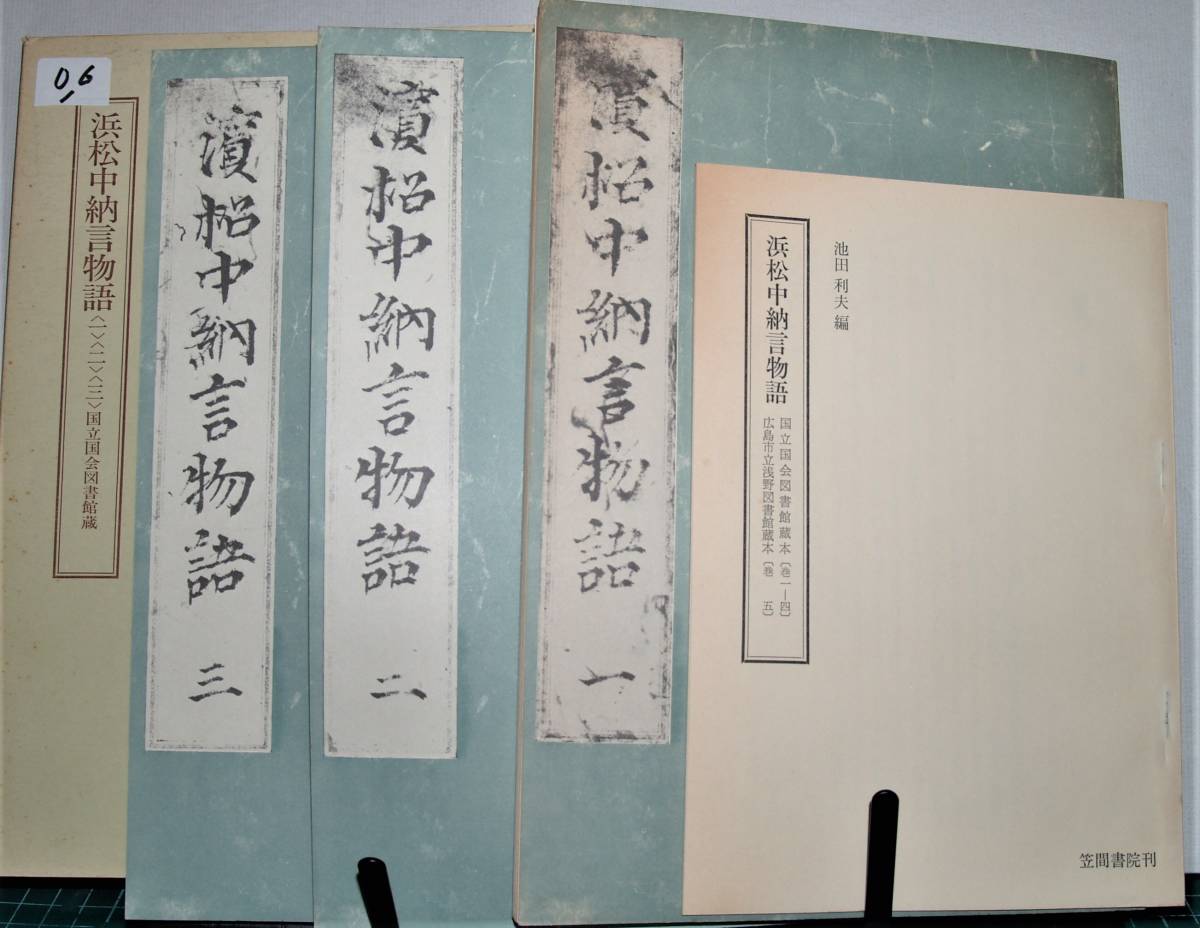 池田 利夫 編
浜松中納言物語
国立国会図書館蔵本〔巻一―四〕
広島市立浅野図書館蔵本〔巻 五〕
笠間書院刊
濱松中納言物語 一
濱松中納言物語 二
濱松中納言物語 三
浜松中納言物語〈一〉〈二〉〈三〉国立国会図書館蔵
0,6